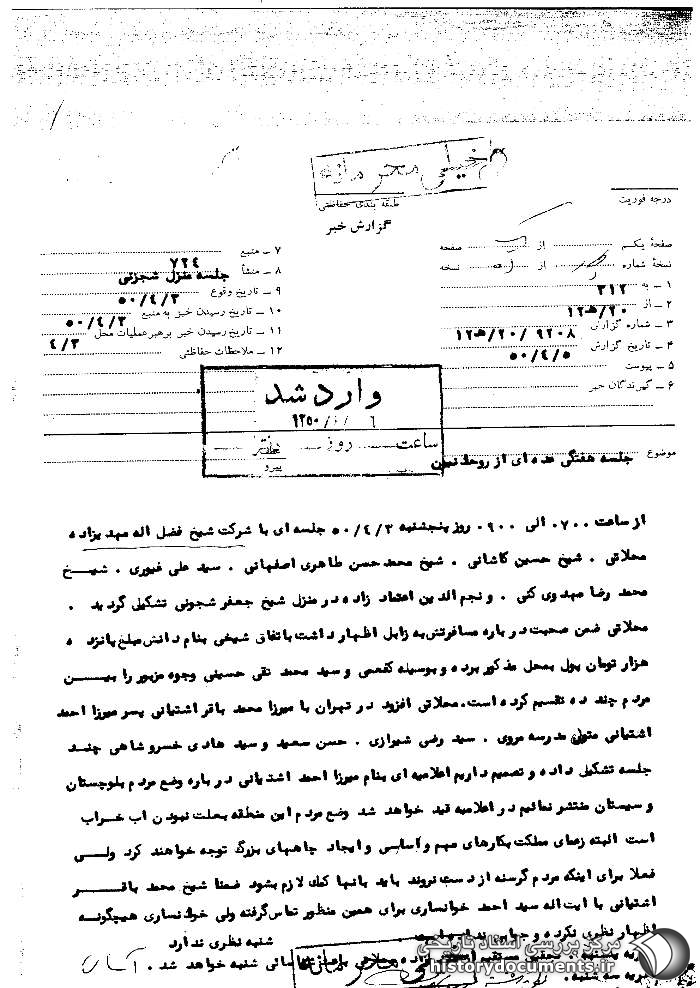 خیلی محرمانه
طبقه بندی حفاظتی
گزارش خبر
درجه فوریت
صفحهٔ یکم از صفحه
نسخهٔ شماره از نسخه
۱ ـ به ۳۱۲
۲ ـ از ۲۰/هـ۱۲
۳ ـ شماره گزارش ۹۲۰۸ /۲۰/هـ۱۲
۴ ـ تاریخ گزارش ۵۰/۴/۵
۵ ـ پیوست
۶ ـ گیرندگان خبر
۷ ـ منبع ۷۲۴
۸ ـ منشأ جلسه منزل شجونی
۹ ـ تاریخ وقوع ۵۰/۴/۳
۱۰ ـ تاریخ رسیدن خبر به منبع ۵۰/۴/۳
۱۱ ـ تاریخ رسیدن خبر برهبر عملیات محل ۴/۳
۱۲ ـ ملاحظات حفاظتی
وارد شد
ساعت روز
موضوع جلسه هفتگی عده ای از روحانیون
از ساعت ۰۷۰۰ الی ۰۹۰۰ روز پنجشنبه ۵۰/۴/۳ جلسه ای با شرکت شیخ فضل اله مهدیزاده
محلاتی . شیخ حسین کاشانی . شیخ محمد حسن طاهری اصفهانی . سید علی غیوری . شیخ
محمد رضا مهدوی کنی . و نجم الدین اعتماد زاده در منزل شیخ جعفر شجونی تشکیل گردید .
محلاتی ضمن صحبت درباره مسافرتش به زابل اظهار داشت باتفاق شیخی بنام دانش مبلغ پانزده
هزار تومان پول بمحل مذکور برده و بوسیله کفعمی و سید محمد تقی حسینی وجوه مزبور را بین
مردم چند ده تقسیم کرده است. محلاتی افزود در تهران با میرزا محمد باقر اشتیانی پسر میرزا احمد
اشتیانی متولی مدرسه مروی . سید رضی شیرازی . حسن سعید و سید هادی خسروشاهی چند
جلسه تشکیل داده و تصمیم داریم اعلامیه ای بنام میرزا احمد اشتیانی درباره وضع مردم بلوچستان
و سیستان منتشر نمائیم در اعلامیه قید خواهد شد وضع مردم این منطقه بعلت نبودن اب خراب
است البته زعمای مملکت بکارهای مهم و اساسی و ایجاد چاههای بزرگ توجه خواهند کرد ولی
فعلا برای اینکه مردم گرسنه از دست نروند باید بانها کمک لازم بشود ضمنا شیخ محمد باقر
اشتیانی با ایت اله سید احمد خوانساری برای همین منظور تماس گرفته ولی خوانساری هیچگونه
اظهار نظری نکرده و جوابی نداده است .
شنبه نظری ندارد
شنبه خواهد شد .
نظریه سه شنبه .
مرکز بررسی اسناد تاریخی
historydocuments.ir